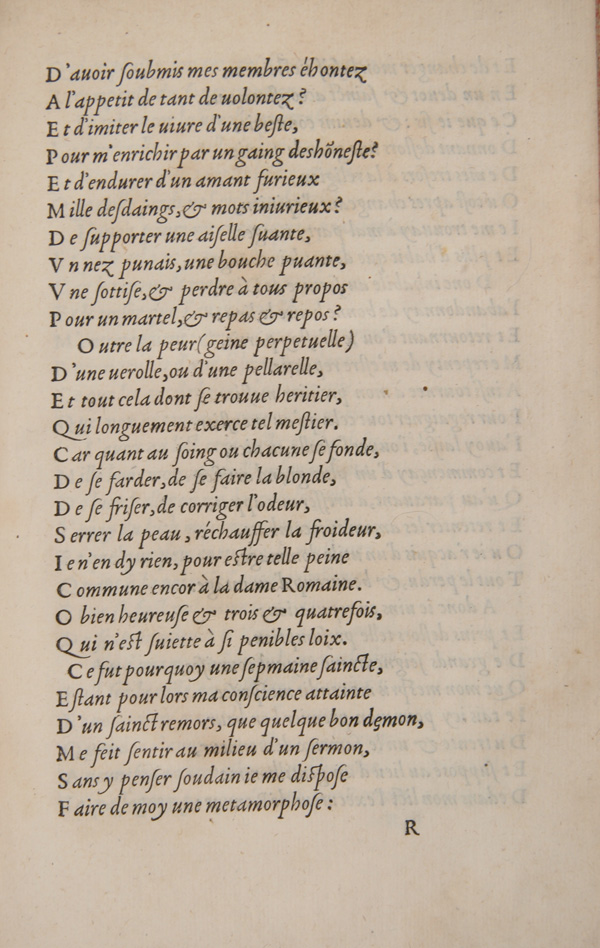 D'auoir ſoubmis mes membres éhontez
A l'appetit de tant de uolontez?
Et d'imiter le uiure d'une beſte,
Pour m'enrichir par un gaing deshõneſte?
Et d'endurer d'un amant furieux
Mille deſdaings, & mots iniurieux?
De ſupporter une aiſelle ſuante,
Vn nez punais, une bouche puante,
Vne ſottiſe, & perdre à tous propos
Pour un martel, & repas & repos?
Outre la peur (geine perpetuelle)
D'une uerolle, ou d'une pellarelle,
Et tout cela dont ſe trouue heritier,
Qui longuement exerce tel meſtier.
Car quant au ſoing ou chacune ſe fonde,
De ſe farder, de ſe faire la blonde,
De ſe friſer, de corriger l'odeur,
Serrer la peau, réchauffer la froideur,
Ie n'en dy rien, pour eſtre telle peine
Commune encor à la dame Romaine.
O bien heureuſe & trois & quatrefois,
Qui n'eſt ſuiette à ſi penibles loix.
Ce fut pourquoy une ſepmaine ſaincte,
Eſtant pour lors ma conſcience attainte
D'un ſainct remors, que quelque bon dęmon,
Me feit ſentir au milieu d'un ſermon,
Sans y penſer ſoudain ie me diſpoſe
Faire de moy une metamorphoſe:
R